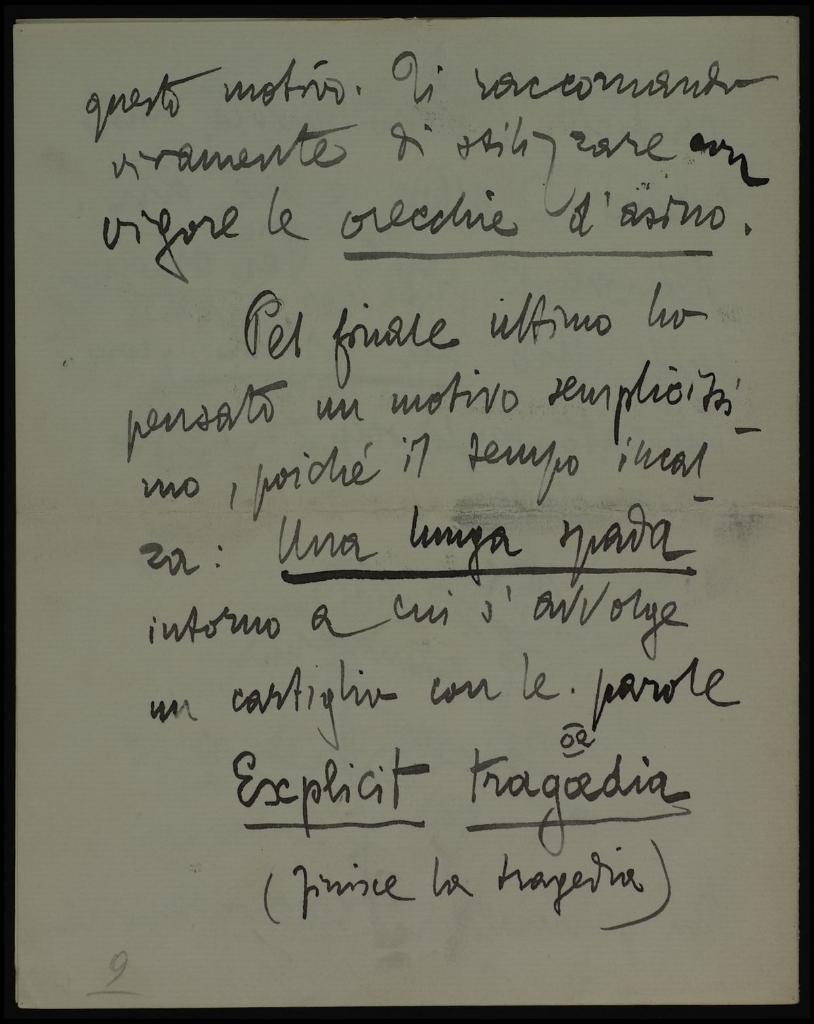 questo motivo. Ti raccomando
vivamente di stilizzare con
vigore le orecchie d'asino.
Pel finale ultimo ho
pensato un motivo semplicissi-
mo, poiché il tempo incal-
za: Una lunga spada
intorno a cui s'avvolge
un cartiglio con le parole
œ
Explicit tragœdia
(finisce la tragedia)
9